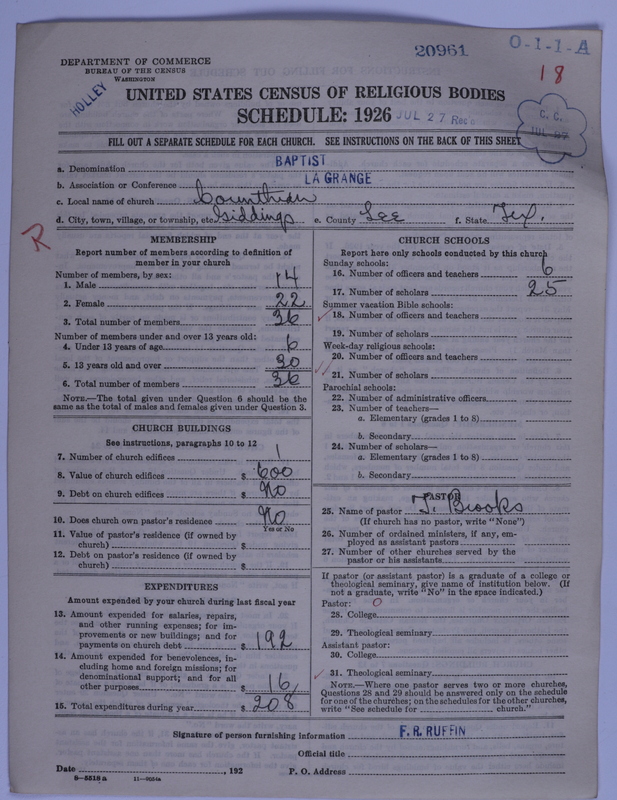 20961 O-1-1-A
DEPARTMENT OF COMMERCE
BUREAU OF THE CENSUS
WASHINGTON
18
HOLLEY
UNITED STATES CENSUS OF RELIGIOUS BODIES
SCHEDULE: 1926 JUL 27 Rec'd
C. C.
JUL
FILL OUT A SEPARATE SCHEDULE FOR EACH CHURCH. SEE INSTRUCTIONS ON THE BACK OF THIS SHEET
a. Denomination BAPTIST
b. Association or Conference LA GRANGE
c. Local name of church
d. City, town, village, or township, etc. Giddings e. County Lee f. State Tex.
R
MEMBERSHIP
Report number of members according to definition of
member in your church
Number of members, by sex:
1. Male 14
2. Female 22
3. Total number of members 36
Number of members under and over 13 years old:
4. Under 13 years of age 6
5. 13 years old and over 30
6. Total number of members 36
NOTE.—The total given under Question 6 should be the
same as the total of males and females given under Question 3.
CHURCH BUILDINGS
See instructions, paragraphs 10 to 12
7. Number of church edifices 1
8. Value of church edifices $ 600
9. Debt on church edifices $ No
10. Does church own pastor's residence No
Yes or No
11. Value of pastor's residence (if owned by
church) $
12. Debt on pastor's residence (if owned by
church) $
EXPENDITURES
Amount expended by your church during last fiscal year
13. Amount expended for salaries, repairs,
and other running expenses; for im-
provements or new buildings; and for
payments on church debt $ 192
14. Amount expended for benevolences, in-
cluding home and foreign missions; for
denominational support; and for all
other purposes $ 16
15. Total expenditures during year $ 208
CHURCH SCHOOLS
Report here only schools conducted by this church
Sunday schools:
16. Number of officers and teachers 6
17. Number of scholars 25
Summer vacation Bible schools:
18. Number of officers and teachers
19. Number of scholars
Week-day religious schools:
20. Number of officers and teachers
21. Number of scholars
Parochial schools:
22. Number of administrative officers
23. Number of teachers—
a. Elementary (grades 1 to 8)
b. Secondary
24. Number of scholars—
a. Elementary (grades 1 to 8)
b. Secondary
PASTOR
25. Name of pastor T. Brooks
(If church has no pastor, write "None")
26. Number of ordained ministers, if any, em-
ployed as assistant pastors
27. Number of other churches served by the
pastor or his assistants
If pastor (or assistant pastor) is a graduate of a college or
theological seminary, give name of institution below. (If
not a graduate, write "No" in the space indicated.)
Pastor: O
28. College
29. Theological seminary
Assistant pastor:
30. College
31. Theological seminary
NOTE.—Where one pastor serves two or more churches,
Questions 28 and 29 should be answered only on the schedule
for one of the churches; on the schedules for the other churches,
write "See schedule for church."
Signature of person furnishing information F. R. RUFFIN
Official title
Date , 192 P. O. Address
8-5518 a 11-9054a